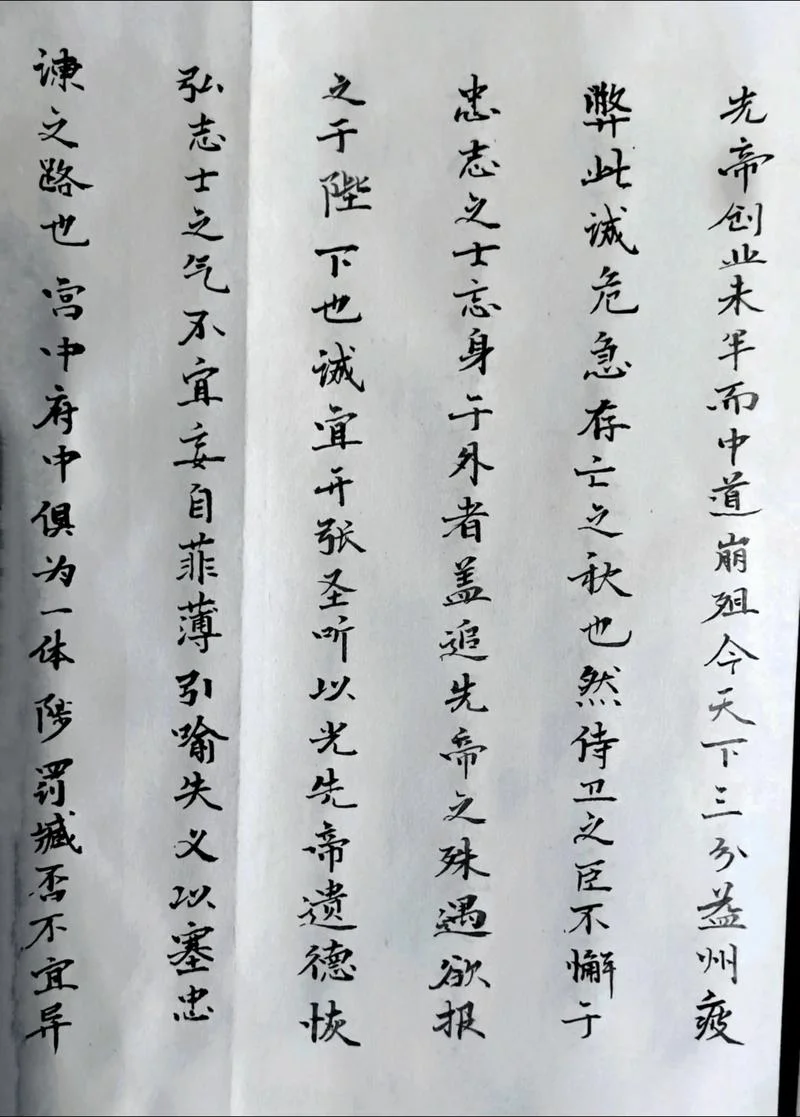 先帝创业未半而中道崩殂今天下三分益州疲
弊此诚危急存亡之秋也然侍卫之臣不懈于
忠志之士忘身于外者盖追先帝之殊遇欲报
之于陛下也诚宜开张圣听以光先帝遗德恢
弘志士之气不宜妄自菲薄引喻失义以塞忠
谏之路也宫中府中俱为一体陟罚臧否不宜异